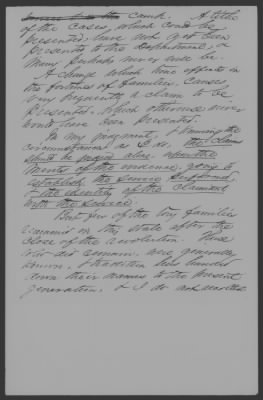 the cause. A tithe
of the cases, which could be
presented, have not yet been
presented to the Department, or
many perhaps never will be.
A change which time effects in
the fortunes of families, causes
very frequently a claim to be
presented, which otherwise never
would have been presented.
In my judgment, & knowing the
circumstances as I do, the claims
should be judged alone upon the
merits of the evidence, going to
establish the service performed,
& the identity of the claimant
with the service.
But few of the Tory families
remained in this state after the
close of the revolution. Those
who did remain, were generally
known, & tradition has handed
down their names to the present
generation, & I do not recollect